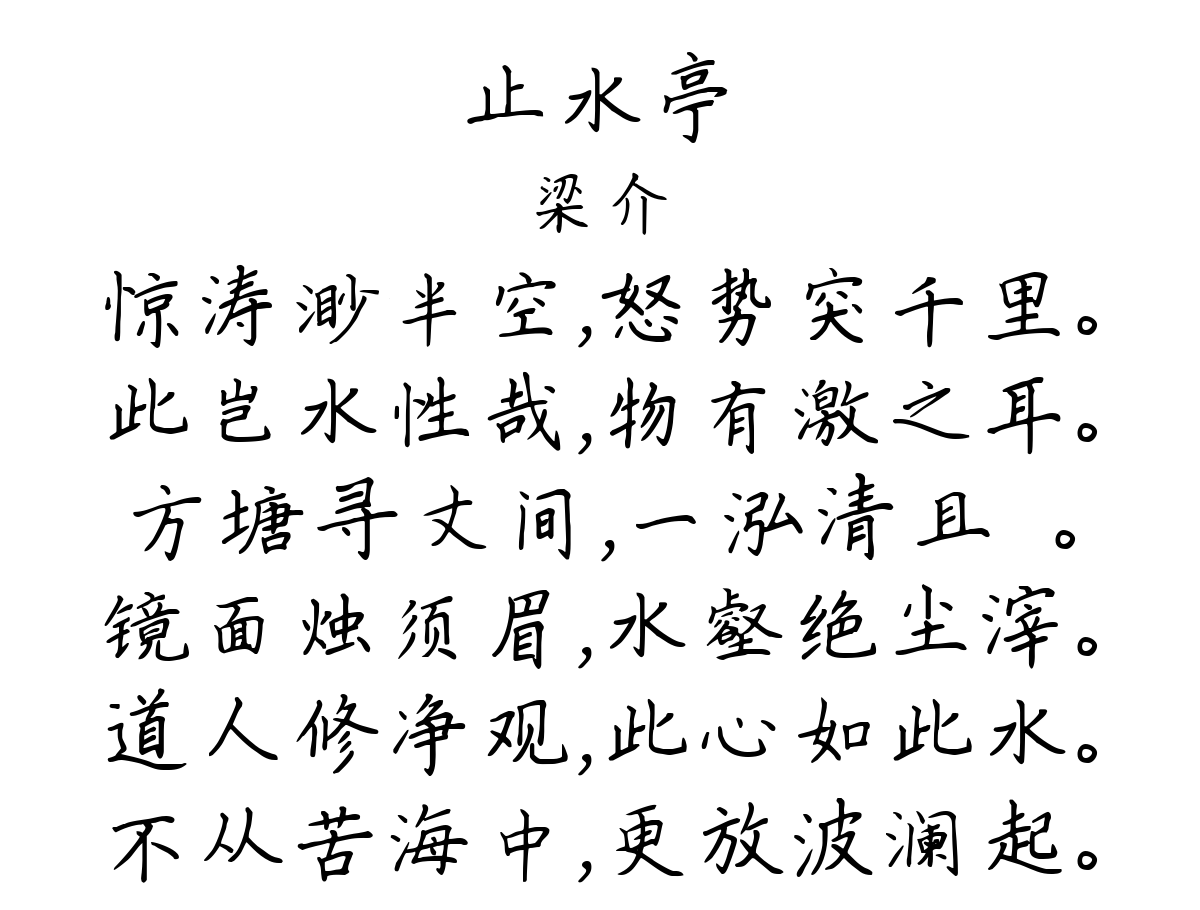 止水亭
梁介
惊涛渺半空,怒势突千里。
此岂水性哉,物有激之耳。
方塘寻丈间,一泓清且 。
镜面烛须眉,水壑绝尘滓。
道人修净观,此心如此水。
不从苦海中,更放波澜起。